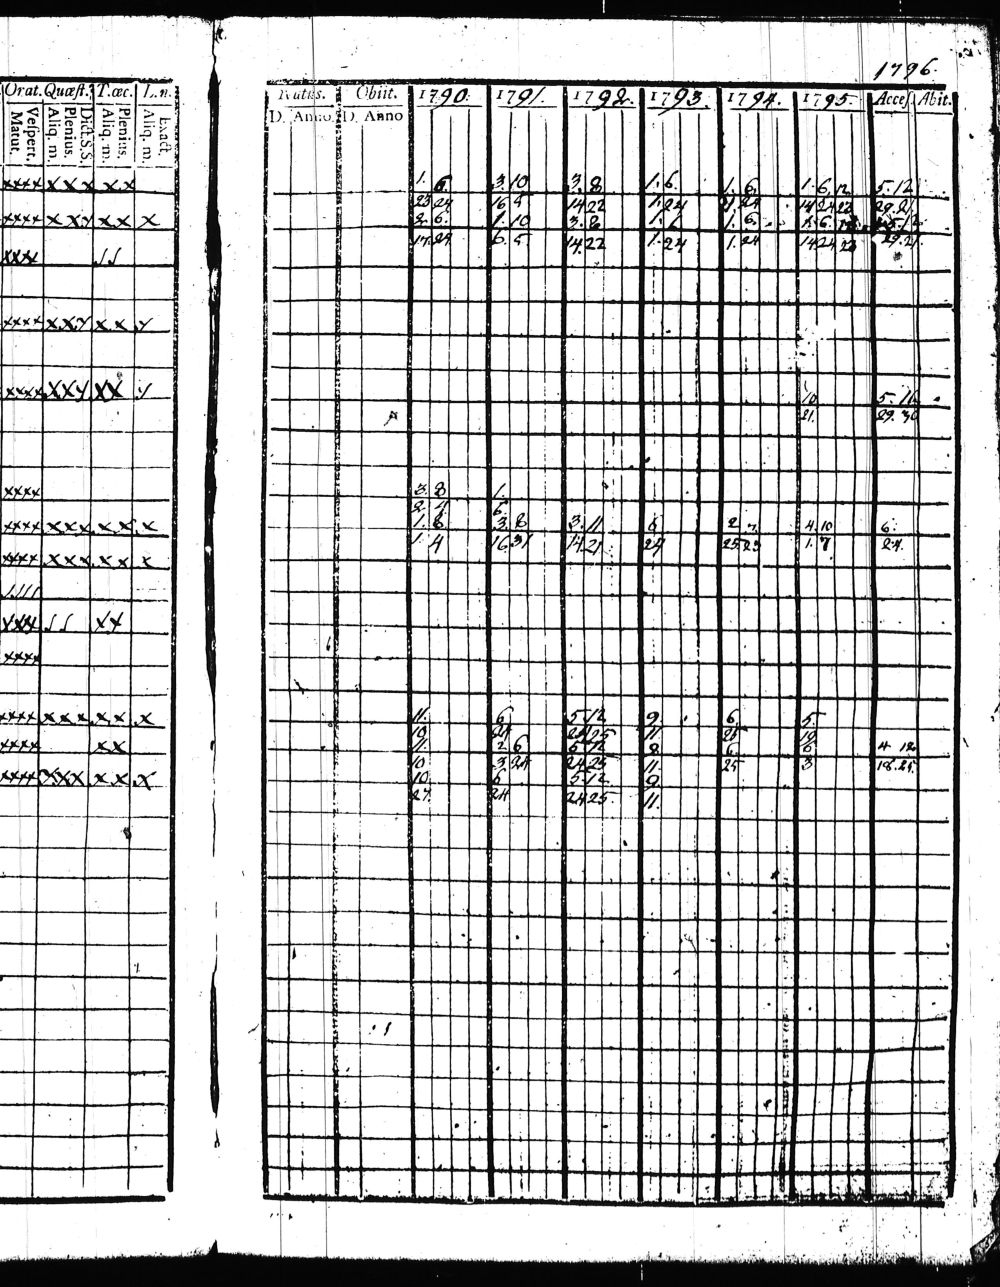 1796.
Orat. Quæst. T.æc. L.n.
Vespert. Matut. Dict.S.S. Plenius. Aliq. m. Plenius. Aliq. m. Exact. Aliq. m.
Natus. Obiit. 1790. 1791. 1792. 1793. 1794. 1795. Access. Abit.
D. Anno. D. Anno
xxxx x x x x x 1. 6. 3. 10 3. 8 1. 6. 1. 6. 1. 6. 12 5. 12
23 24 16 5 14 22 1. 24 1. 24 14 24 22 29. 21.
xxxx x x y x x x 2. 6. 1. 10 3. 8 1. 6. 1. 6.
17. 24 6. 5 14. 22 1. 24 1. 24 14 24 22 29. 21.
xxxx
xxxx x x y x x y
xxxx x x y x x y 10 5. 11.
21. 29. 30
xxxx 3. 8 1.
2. 4 6.
xxxx x x x x x x 1. 6 3. 8 3. 11 6 2 4. 10 6.
1. 4 16 31 14. 21 24 25. 23 1. 7 24.
xxxx x x x x x x
xxxx x x
xxxx
xxxx x x x x x x 11. 6 5. 12 9. 6. 5.
10. 24 24 25 11. 25 19.
xxxx x x 11. 2. 6 5 12 8. 6. 6 4 12
10 3 24 24. 25 11. 25 3 18. 25.
xxxx x x x x x x 10. 6 5. 12 9.
27. 24 24 25. 11.